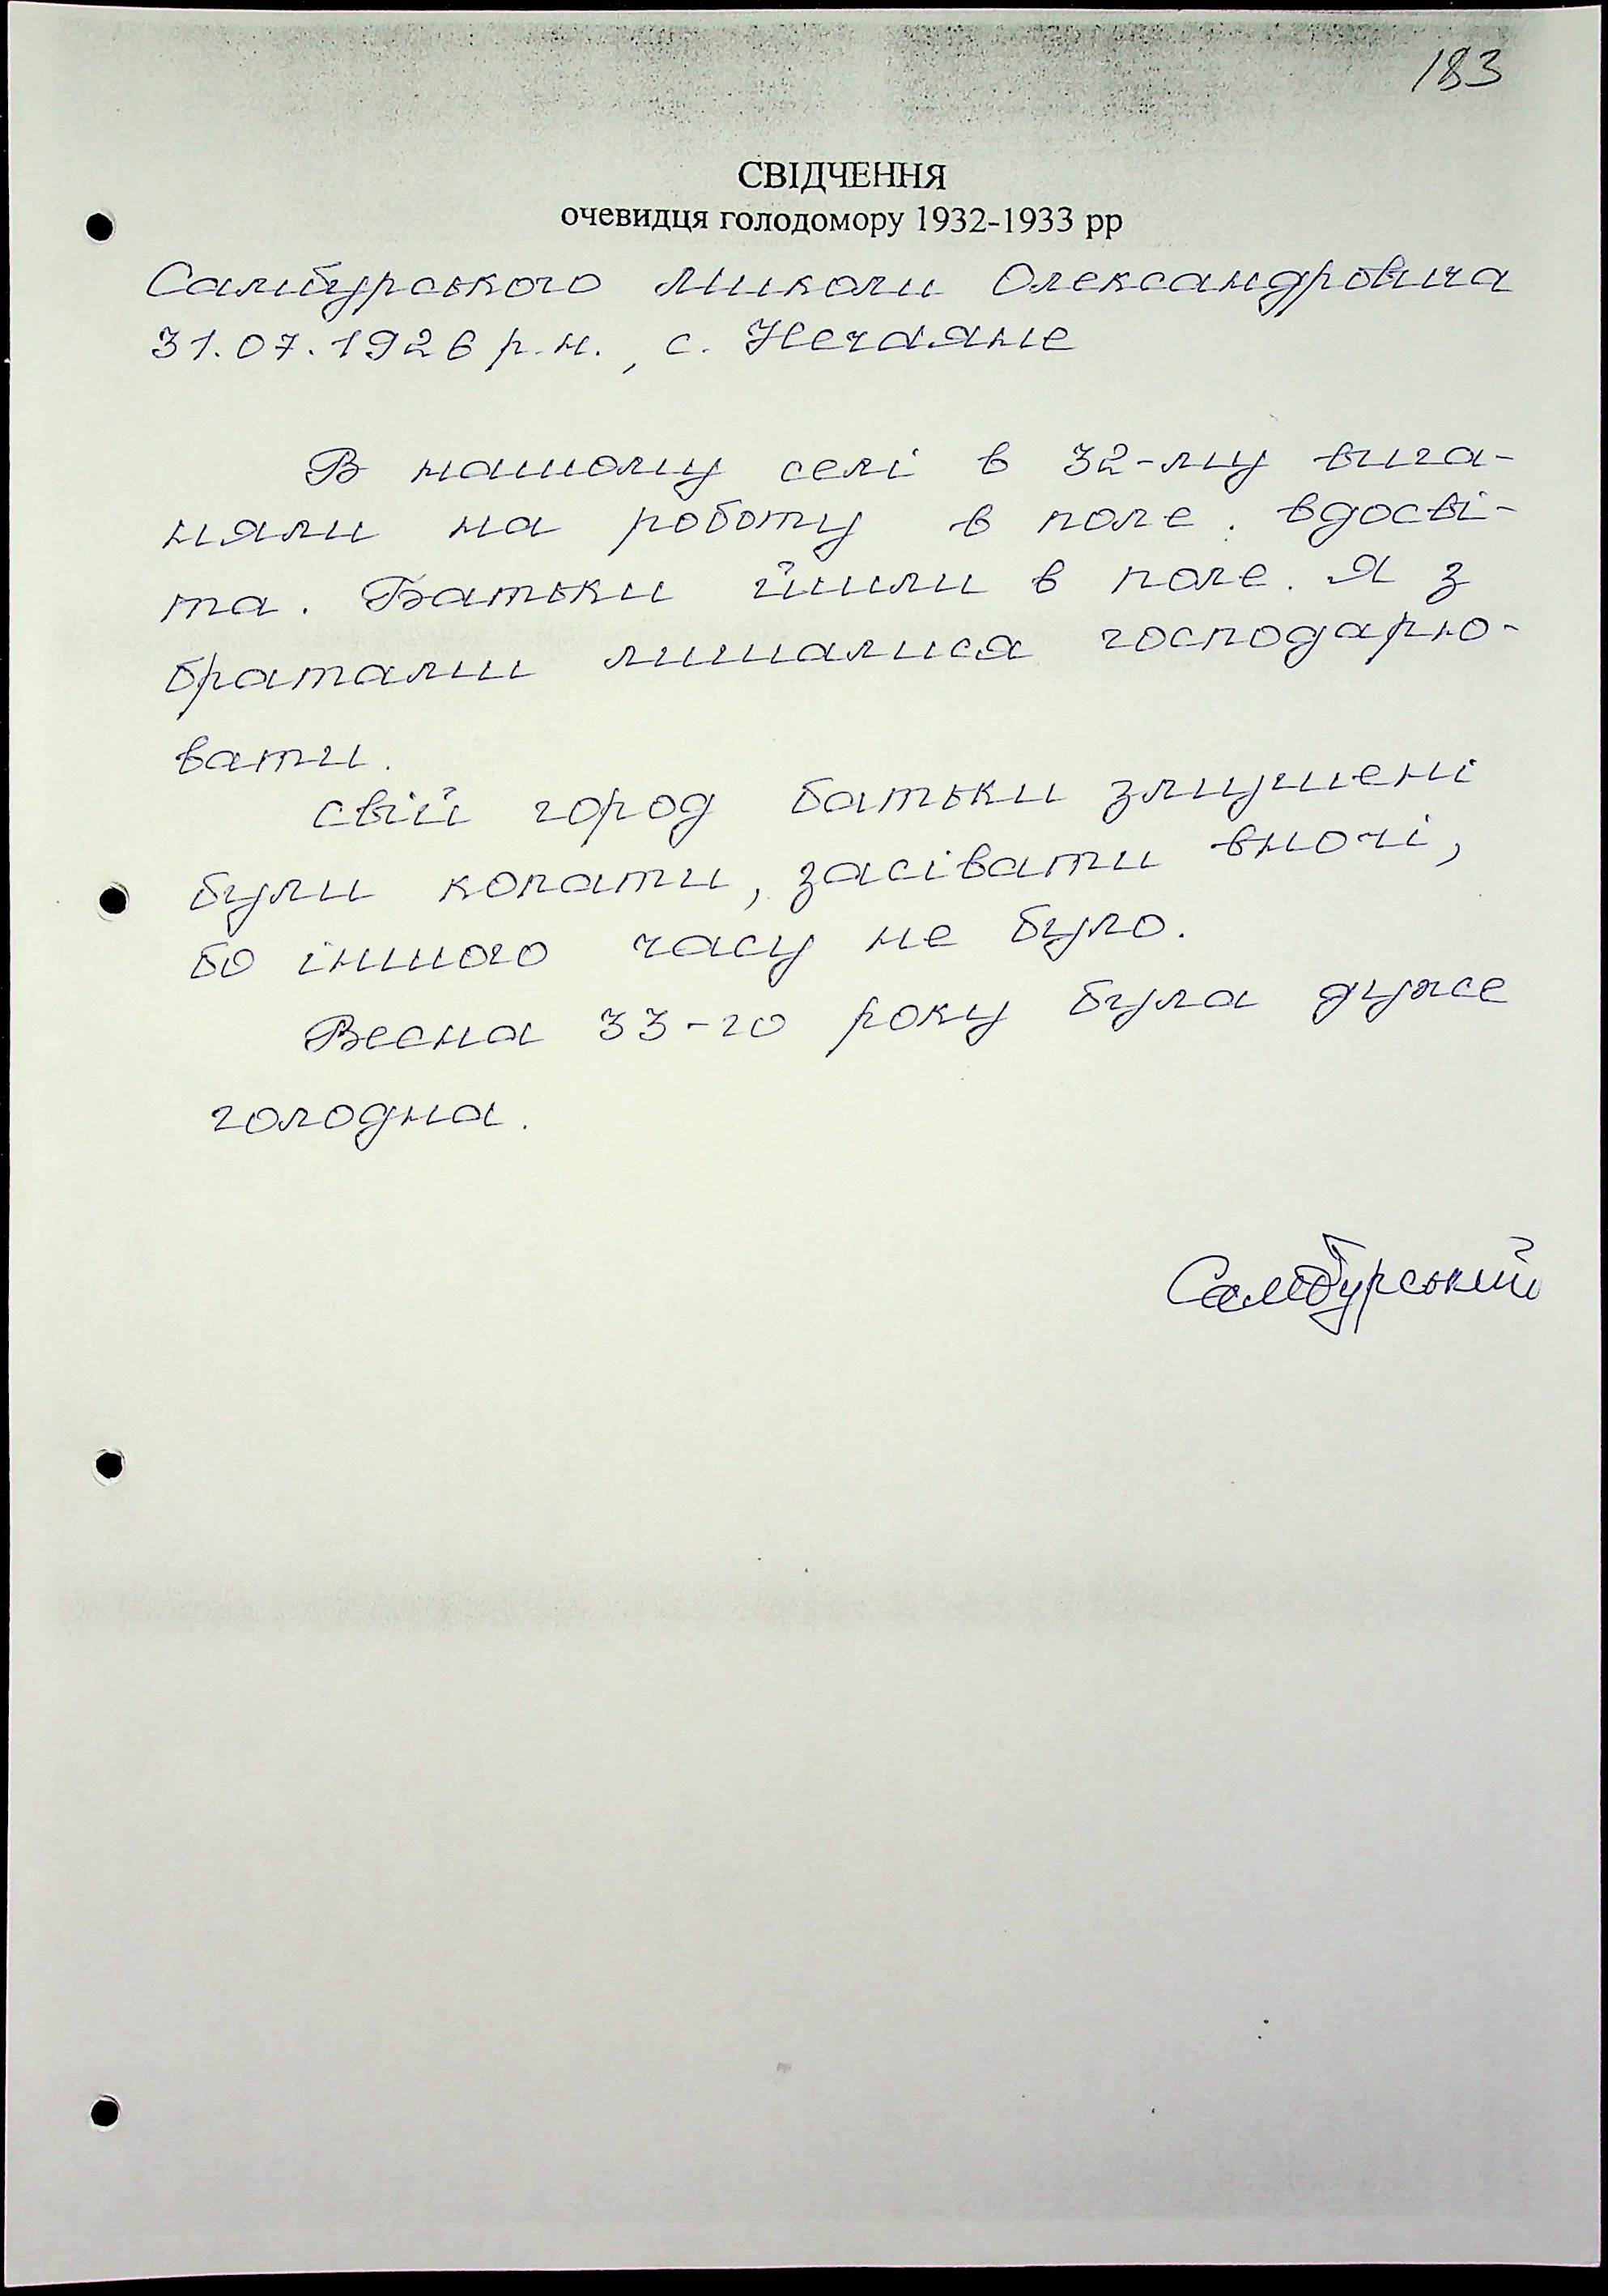 183
СВІДЧЕННЯ
очевидця голодомору 1932-1933 рр
Самбурського Миколи Олександровича
31.07.1926 р.н., с. Нечаяне
В нашому селі в 32-му вига-
няли на роботу в поле. вдосві-
та. Батьки йшли в поле. Я з
братами лишалися господарю-
вати.
свій город батьки змушені
були копати, засівати вночі,
бо іншого часу не було.
Весна 33-го року була дуже
голодна.
Самбурський